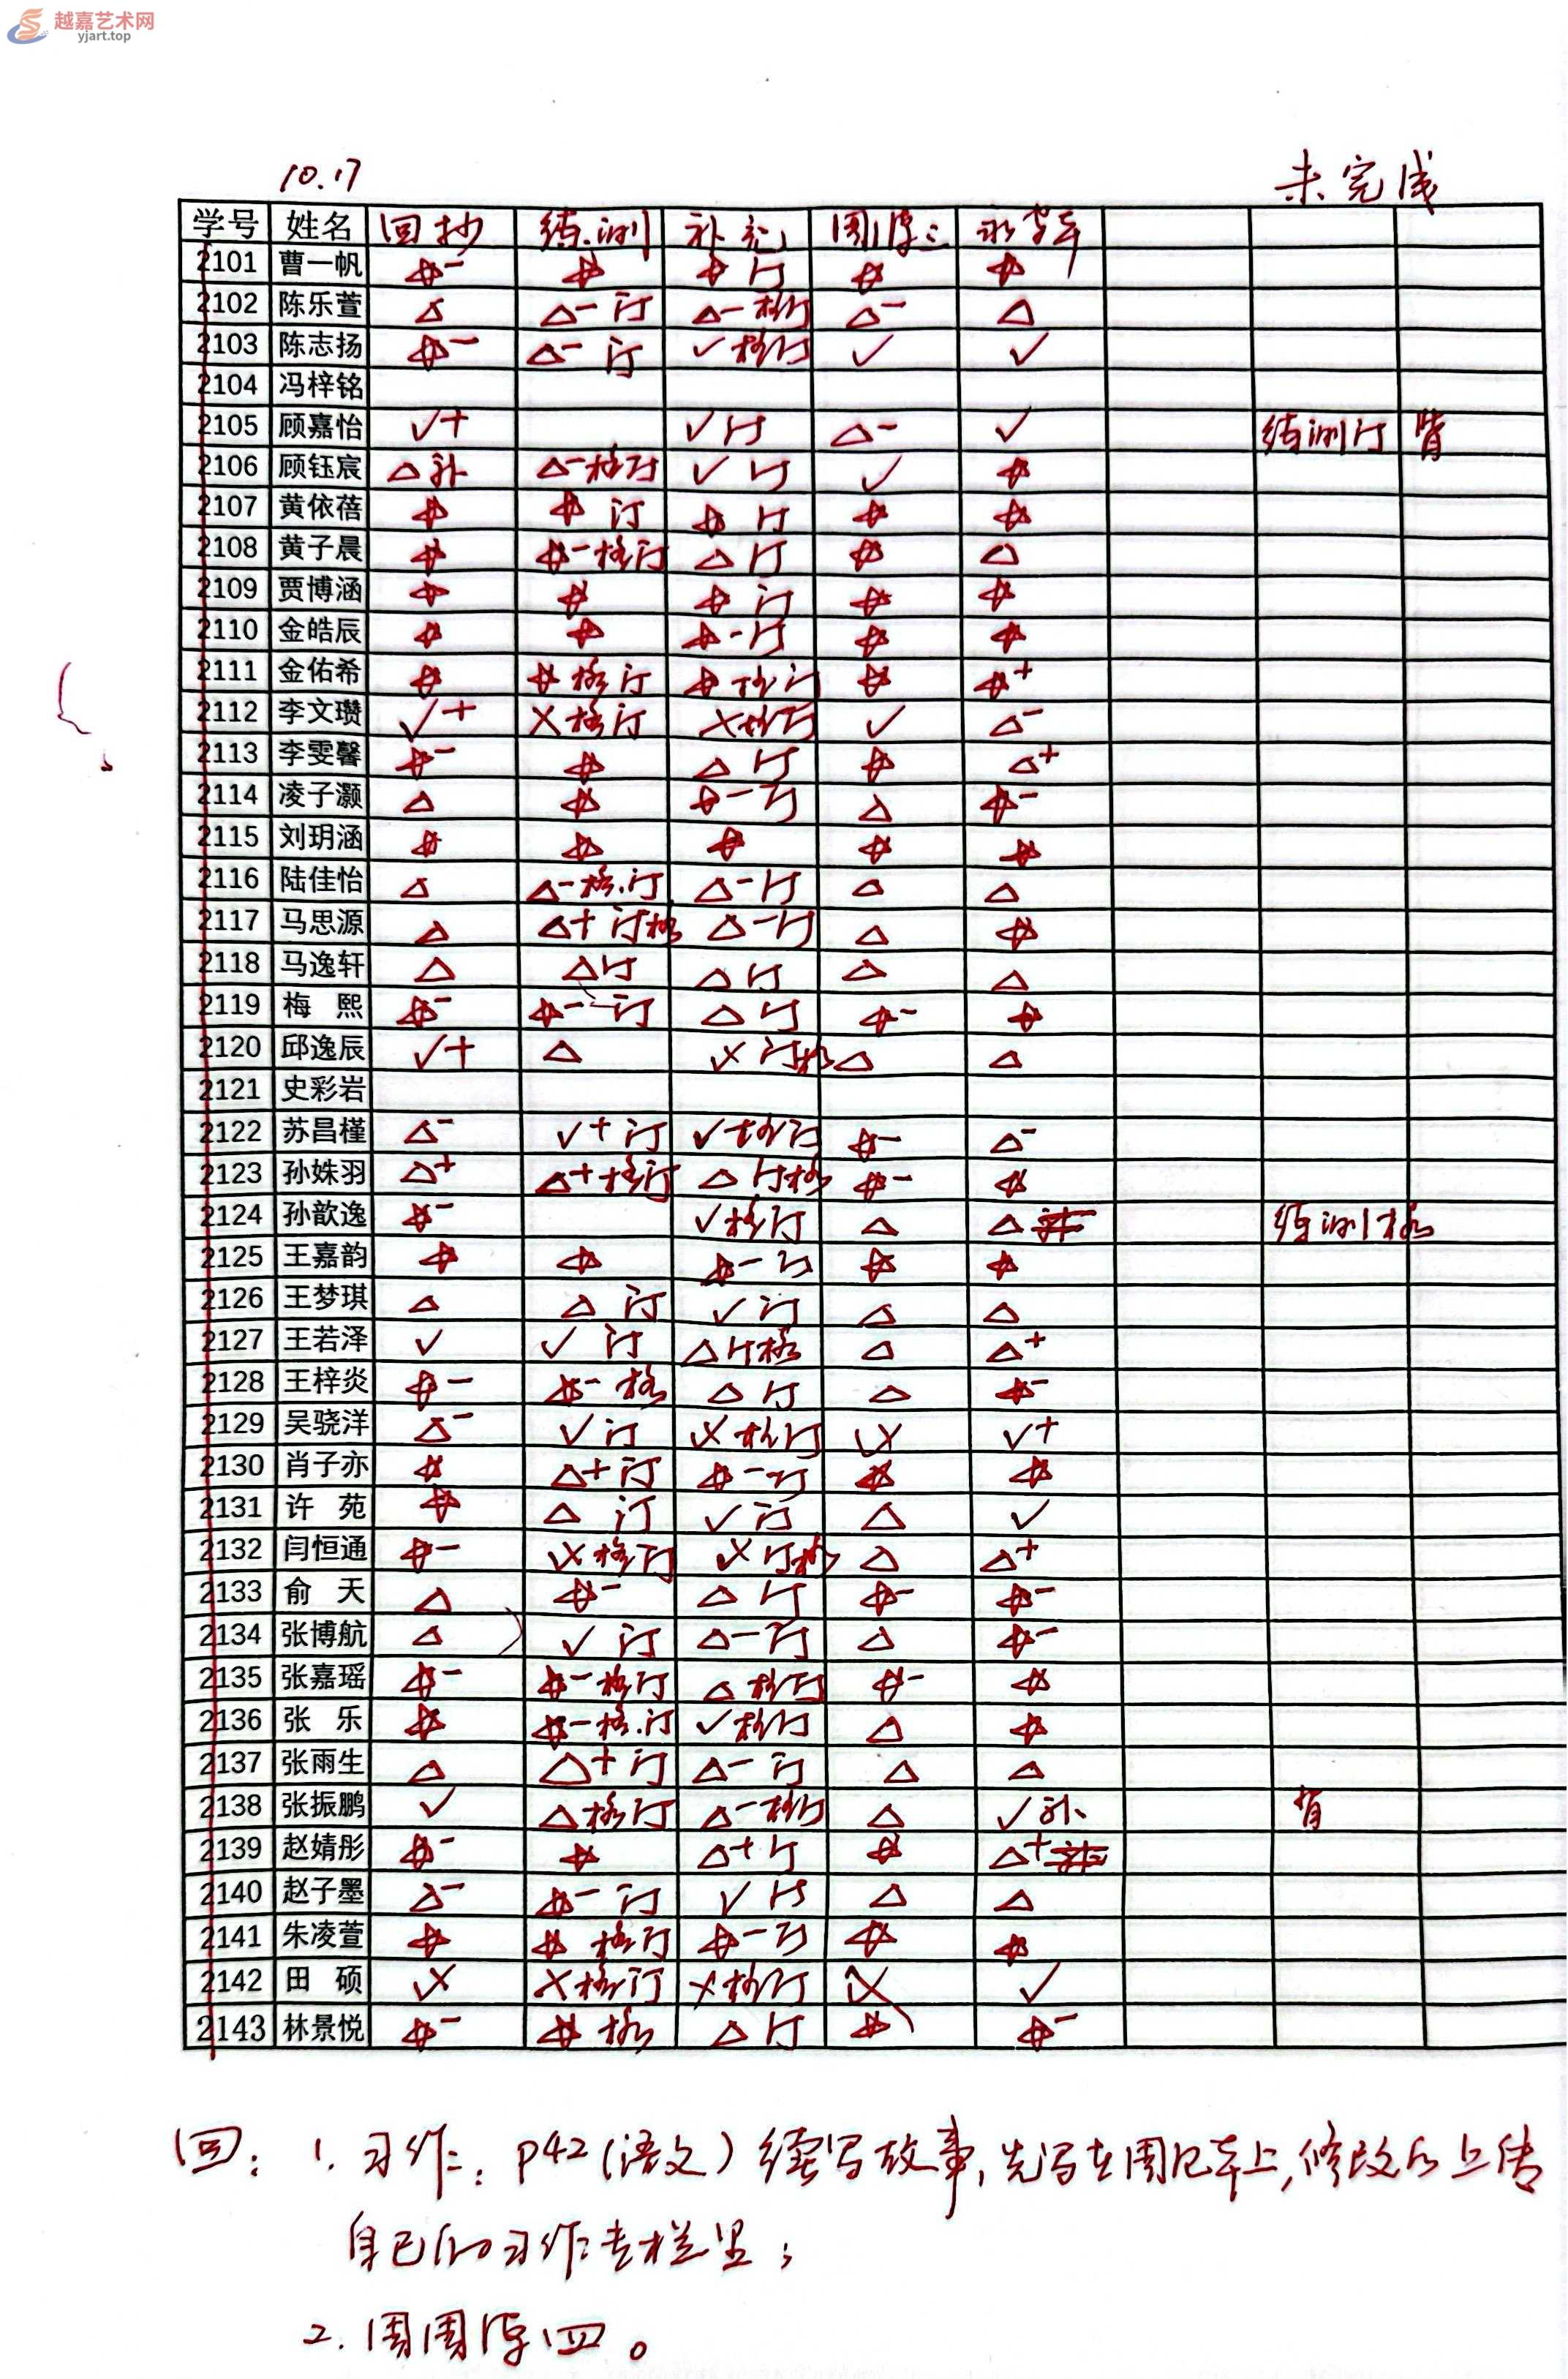 越嘉艺术网
yjart.top
10.17
未完成
学号 姓名 回抄 练测 补充 周周练三
2101 曹一帆 ☆- ☆ ☆ 订 ☆ ☆
2102 陈乐萱 △ △- 订 △- 格订 △- △
2103 陈志扬 ☆- △- 订 ✓ 格订 ✓ ✓
2104 冯梓铭
2105 顾嘉怡 ✓+ ✓ 订 △- ✓ 练测订 背
2106 顾钰宸 △ 补 △- 格订 ✓ 订 ✓ ☆
2107 黄依蓓 ☆ ☆ 订 ☆ 订 ☆ ☆
2108 黄子晨 ☆ ☆- 格订 △ 订 ☆ △
2109 贾博涵 ☆ ☆ ☆ 订 ☆ ☆
2110 金皓辰 ☆ ☆ ☆- 订 ☆ ☆
2111 金佑希 ☆ ☆ 格订 ☆ 格订 ☆ ☆+
2112 李文瓒 ✓+ × 格订 × 格订 ✓ △-
2113 李雯馨 ☆- ☆ △ 订 ☆ △+
2114 凌子灏 △ ☆ ☆- 订 △ ☆-
2115 刘玥涵 ☆ ☆ ☆ ☆ ☆
2116 陆佳怡 △ △- 格.订 △- 订 △ △
2117 马思源 △ △+ 订格 △- 订 △ ☆
2118 马逸轩 △ △ 订 △ 订 △ △
2119 梅 熙 ☆- ☆- 订 △ 订 ☆- ☆
2120 邱逸辰 ✓+ △ × 订格 △ △
2121 史彩岩
2122 苏昌槿 △- ✓+ 订 ✓ 格订 ☆- △-
2123 孙姝羽 △+ △+ 格订 △ 订格 ☆- ☆
2124 孙歆逸 ☆- ✓ 格订 △ △ 练测格
2125 王嘉韵 ☆ ☆ ☆- 订 ☆ ☆
2126 王梦琪 △ △ 订 ✓ 订 △ △
2127 王若泽 ✓ ✓ 订 △ 订格 △ △+
2128 王梓炎 ☆- ☆- 格 △ 订 △ ☆-
2129 吴骁洋 △- ✓ 订 × 格订 × ✓+
2130 肖子亦 ☆ △+ 订 ☆- 订 ☆ ☆
2131 许 苑 ☆ △ 订 ✓ 订 △ ✓
2132 闫恒通 ☆- × 格订 × 订格 △ △+
2133 俞 天 △ ☆- △ 订 ☆- ☆-
2134 张博航 △ ✓ 订 △- 订 △ ☆-
2135 张嘉瑶 ☆- ☆- 格订 △ 格订 ☆- ☆
2136 张 乐 ☆ ☆- 格.订 ✓ 格订 △ ☆
2137 张雨生 △ △+ 订 △- 订 △ △
2138 张振鹏 ✓ △ 格订 △- 格订 △ ✓ 补 背
2139 赵婧彤 ☆- ☆ △+ 订 ☆ △+
2140 赵子墨 △- ☆- 订 ✓ 订 △ △
2141 朱凌萱 ☆ ☆ 格订 ☆- 订 ☆ ☆
2142 田 硕 × × 格订 × 格订 × ✓
2143 林景悦 ☆- ☆ 格 △ 订 ☆ ☆-
回: 1. 习作: P42(语文)续写故事,先写在周记本上,修改后上传
自己的习作专栏里;
2. 周周练四。